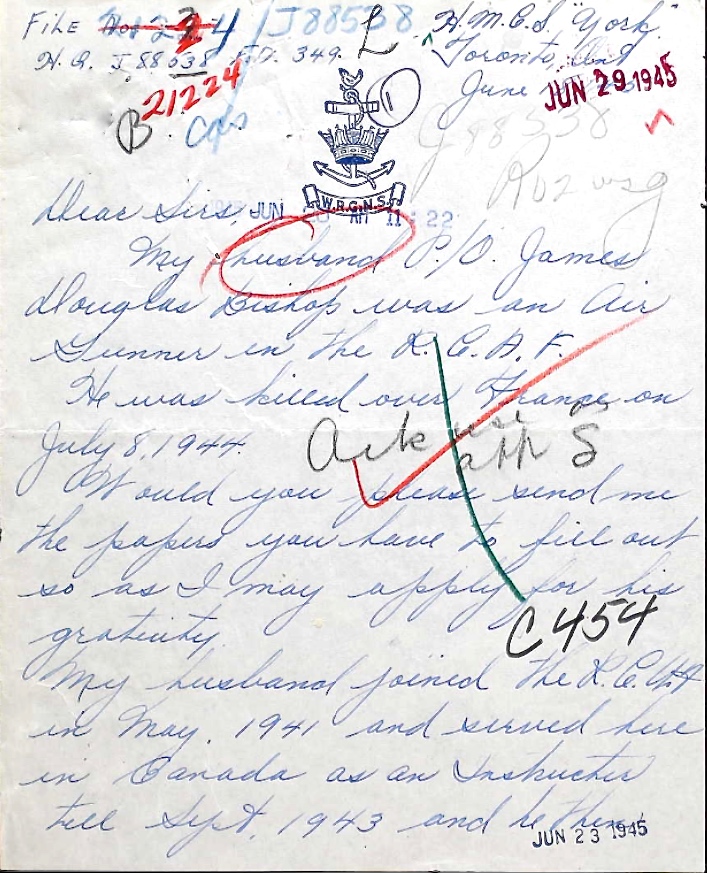 FILE No. 2224 / J88538 L H.M.C.S "York"
H.Q. J 88538 F.D. 349. Toronto, Ont
21224 June JUN 29 1945
B J88538
W.R.C.N.S.
Dear Sirs, JUN AM 11:22
My husband P/O. James
Douglas Bishop was an Air
Gunner in the R.C.A.F.
He was killed over France on
July 8, 1944.
Ack use as
app S
Would you please send me
the papers you have to fill out
so as I may apply for his
gratuity.
C454
My husband joined the R.C.A.F
in May, 1941 and served here
in Canada as an Instructer
till Sept, 1943 and he then
JUN 23 1945